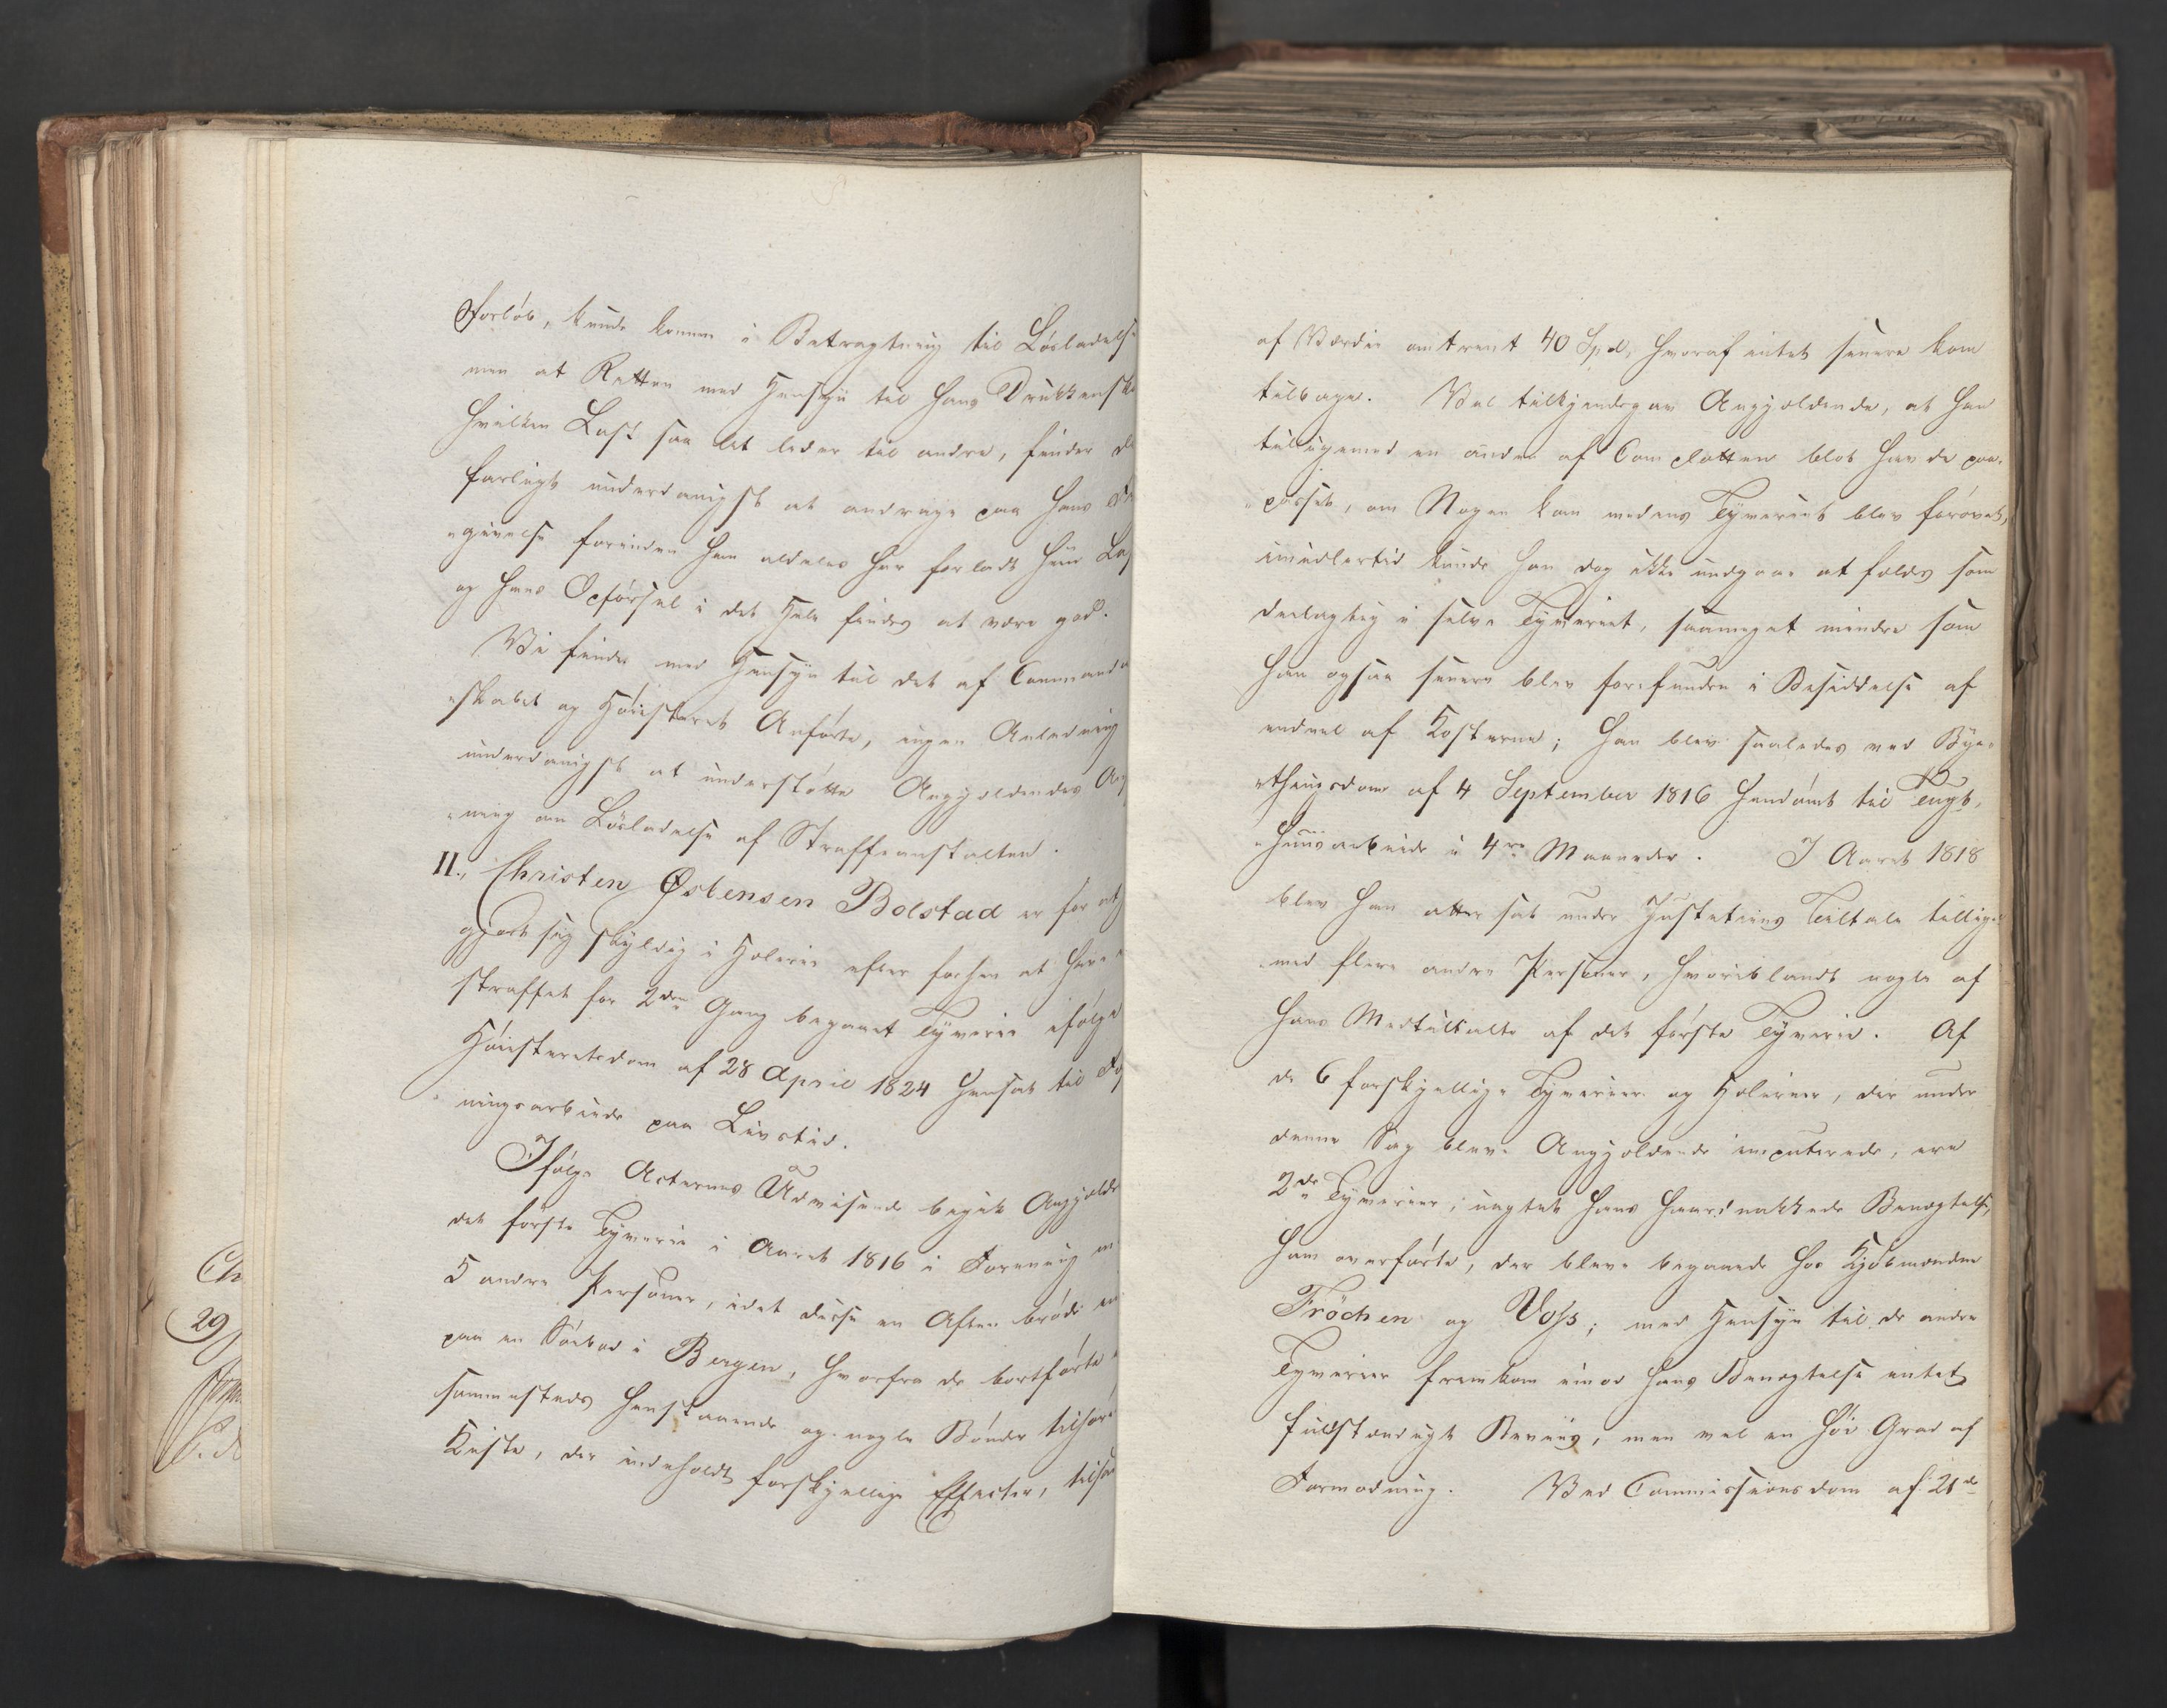 Forløb, kunde komme i Betragtning til Løsladelse
men at Retten med Hensyn til hans Drukkensk
hvilken Last saa let leder til andre, finder d
farligt underdanigst at andrage paa hans F
„givelse forinden han aldeles har forladt hiin La
og hans Opførsel i det Hele findes at være god.
Vi finde med Hensyn til det af Commanda
„skabet og Høiesteret Anførte, ingen Anledning
underdanigst at understøtte Angjældendes An
„ning om Løsladelse af Straffeanstalten.
II., Christen Østensen Bolstad er for at
gjort sig skyldig i Hæleri efter forhen at have
straffet for 2den Gang begaaet Tyverie ifølge
Høiesteretsdom af 28 April 1824 hensat til Fæ
„ningsarbeide paa Livstid.
Ifølge Acternes Udvisende begik Angjælde
det første Tyverie i Aaret 1816 i Forening m
5 andre Personer, idet disse en Aften brøde in
paa en Søebod i Bergen, hvorfra de bortførte
sammesteds henstaaende og nogle Bønder tilhør
Kiste, der indeholdt forskjellige Effecter, tils
Ch
29
af Værdie omtrent 40 Spd, hvoraf intet senere kom
tilbage. Vel tilkjendegav Angjældende, at han
tilligemed en anden af Complotten blot havde paa„
„passet, om Nogen kom medens Tyveriet blev forøvet,
imidlertid kunde han dog ikke undgaae at fældes som
deelagtig i selve Tyveriet, saameget mindre som
han ogsaa senere blev forefunden i Besiddelse af
endeel af Kosterne; han blev saaledes ved Bye„
„thingsdom af 4 September 1816 hendømt til Tugt„
„huusarbeide i 4re Maaneder. I Aaret 1818
blev han atter sat under Justitiens Tiltale tillige„
„med flere andre Personer, hvoriblandt nogle af
hans Medtiltalte af det første Tyverie. Af
de 6 forskjellige Tyverier og Hælerier, der under
denne Sag bleve Angjældende imputerede, ere
2de Tyverier, uagtet hans haardnakkede Benægtelse,
ham overførte, der bleve begaaede hos Kjøbmændene
Fröchen og Voss; med Hensyn til de andre
Tyverier fremkom imod hans Benægtelse intet
fuldstændigt Beviis, men vel en høi Grad af
Formodning. Ved Commissionsdom af 21de